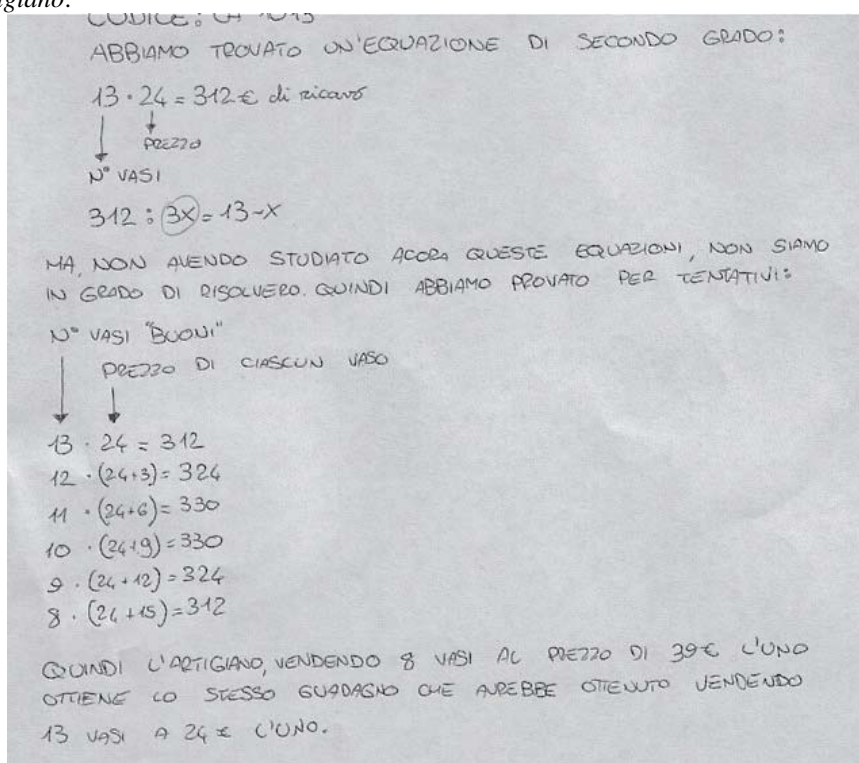 igiano.
CODICE:
ABBIAMO TROVATO UN'EQUAZIONE DI SECONDO GRADO:
13 · 24 = 312 € di ricavo
PREZZO
N° VASI
312 : 3X = 13-X
MA, NON AVENDO STUDIATO ACORA QUESTE EQUAZIONI, NON SIAMO
IN GRADO DI RISOLVERO. QUINDI ABBIAMO PROVATO PER TENTATIVI:
N° VASI "BUONI"
PREZZO DI CIASCUN VASO
13 · 24 = 312
12 · (24+3) = 324
11 · (24+6) = 330
10 · (24+9) = 330
9 · (24+12) = 324
8 · (24+15) = 312
QUINDI L'ARTIGIANO, VENDENDO 8 VASI AL PREZZO DI 39€ L'UNO
OTTIENE LO STESSO GUADAGNO CHE AVREBBE OTTENUTO VENDENDO
13 VASI A 24 € L'UNO.